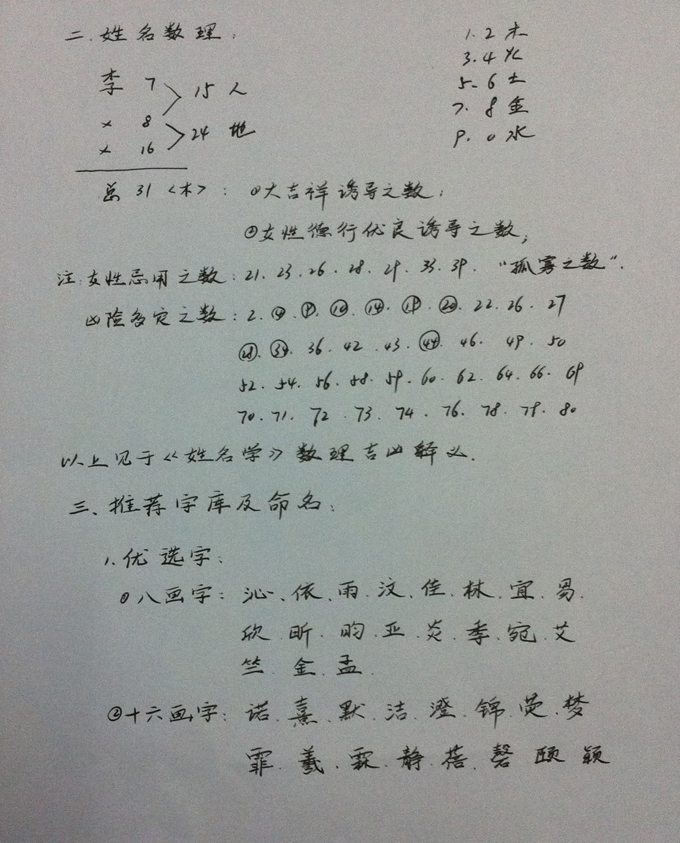 二.姓名数理:
1.2 木
3.4 火
5.6 土
7.8 金
9.0 水
李 7 15 人
× 8 24 地
× 16
总 31 <木>: ①大吉祥诱导之数;
②女性德行优良诱导之数;
注:女性忌用之数:21.23.26.28.29.33.39. "孤寡之数".
凶险多定之数:2.④.⑨.⑩.⑭.⑲.⑳.22.26.27
㉘.㉞.36.42.43.㊹.46.49.50
52.54.56.58.59.60.62.64.66.69
70.71.72.73.74.76.78.79.80
以上见于《姓名学》数理吉凶释义.
三、推荐字库及命名:
1.优选字:
①八画字:沁、依、雨、汶、佳、林、宜、易.
欣、昕、昀、亚、炎、季、宛、艾
竺.金.孟.
②十六画字:诺.熹.默.洁.澄.锦.蓂.梦
霏.羲.霖.静.蓓.磬 颐 颖